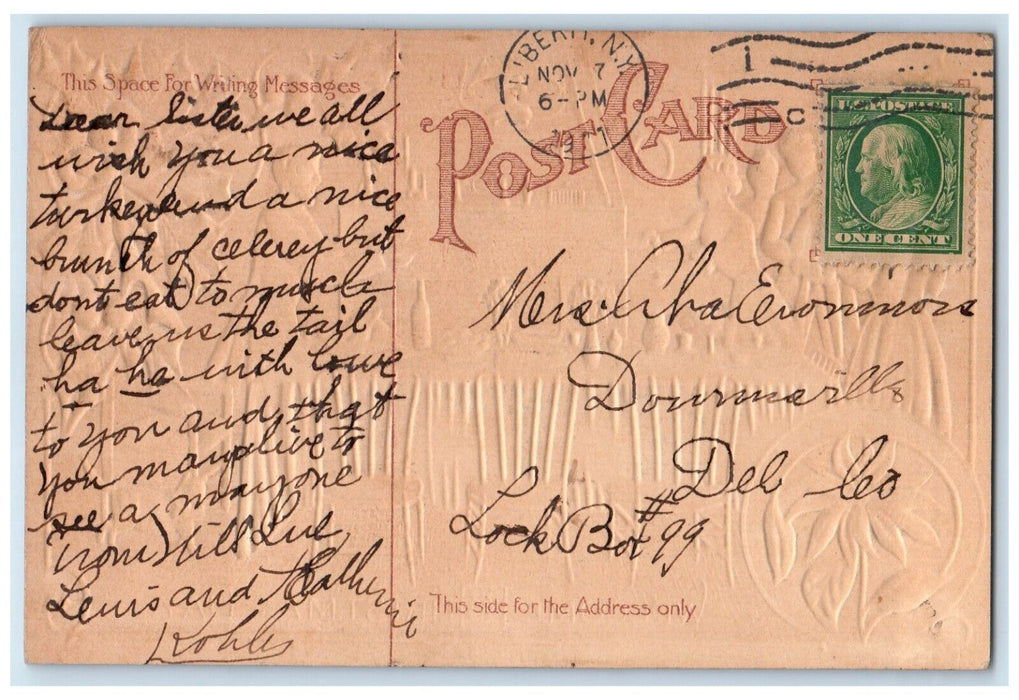 This Space For Writing Messages
Dear sister we all
wish you a nice
turkey and a nice
bunch of celerey but
dont eat to much
leave us the tail
ha ha with love
to you and that
you may live to
see a many one
from Will Sue
Lewis and Catherin
Kohler
LIBERTY, N.Y.
NOV 7
6-PM
1911
POST CARD
1
C
U.S. POSTAGE
ONE CENT
Mrs.
Downsville
Del Co
Lock Box #99
This side for the Address only